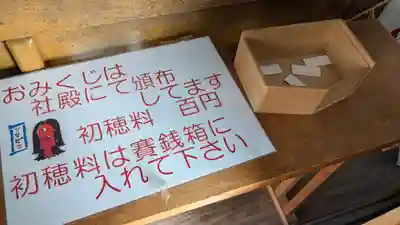 おみくじは
社殿にて頒布
してます
初穂料 百円
初穂料は賽銭箱に
入れて下さい